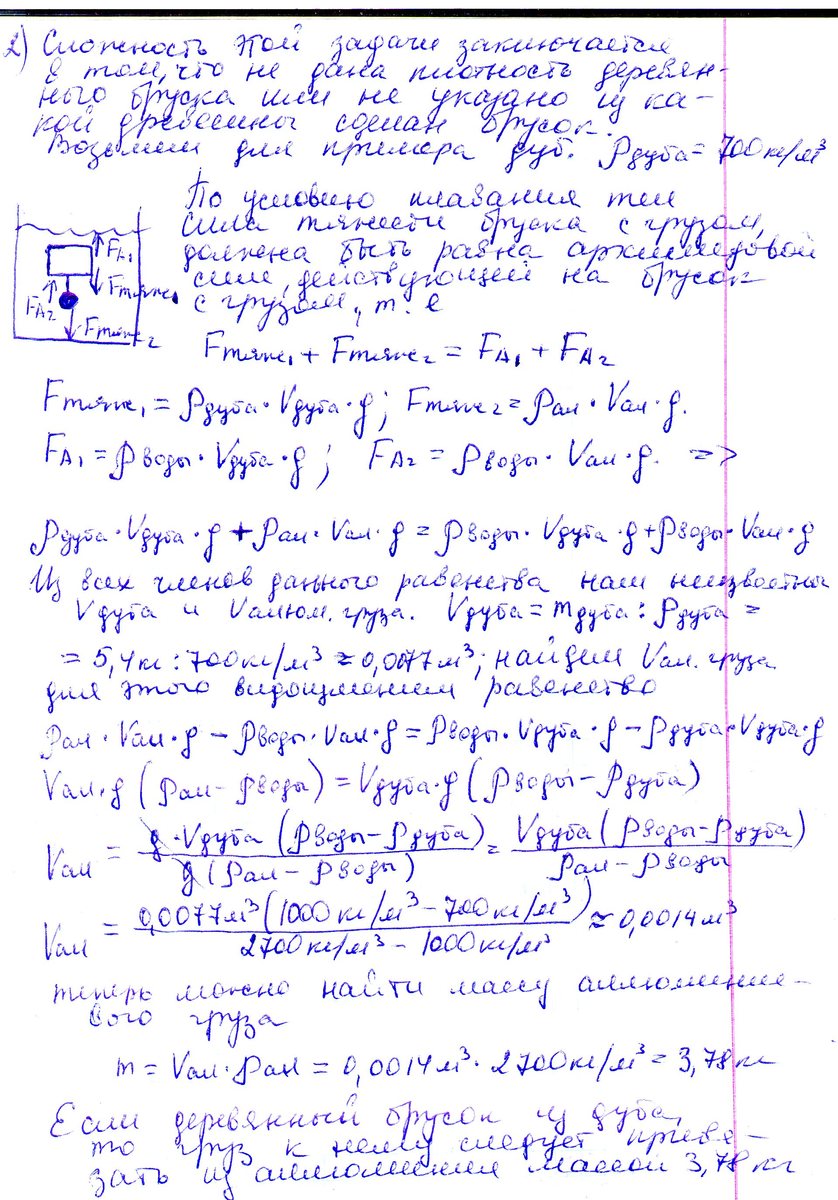 2) Сложность этой задачи заключается
в том, что не дана плотность деревян-
ного бруска или не указано из ка-
кой древесины сделан брусок.
Возьмем для примера дуб. ρдуба = 700 кг/м³
По условию плавания тел
сила тяжести бруска с грузом,
должна быть равна архимедовой
силе, действующей на брусок
с грузом, т. е
FA₁
Fтяж₁
FA₂
Fтяж₂
Fтяж₁ + Fтяж₂ = FA₁ + FA₂
Fтяж₁ = ρдуба · Vдуба · g; Fтяж₂ = ρал · Vал · g.
FA₁ = ρводы · Vдуба · g; FA₂ = ρводы · Vал · g. =>
ρдуба · Vдуба · g + ρал · Vал · g = ρводы · Vдуба · g + ρводы · Vал · g
Из всех членов данного равенства нам неизвестны
Vдуба и Vалюм. груза. Vдуба = mдуба : ρдуба =
= 5,4кг : 700кг/м³ ≈ 0,0077м³; найдем Vал. груза
для этого видоизменяем равенство
ρал · Vал · g − ρводы · Vал · g = ρводы · Vдуба · g − ρдуба · Vдуба · g
Vал · g (ρал − ρводы) = Vдуба · g (ρводы − ρдуба)
Vал = g · Vдуба (ρводы − ρдуба) / g (ρал − ρводы) = Vдуба (ρводы − ρдуба) / ρал − ρводы
Vал = 0,0077м³ (1000 кг/м³ − 700кг/м³) / 2700кг/м³ − 1000кг/м³ ≈ 0,0014м³
теперь можно найти массу аллюминие-
вого груза
m = Vал · ρал = 0,0014м³ · 2700кг/м³ = 3,78 кг
Если деревянный брусок из дуба,
то груз к нему следует привя-
зать из аллюминия массой 3,78 кг